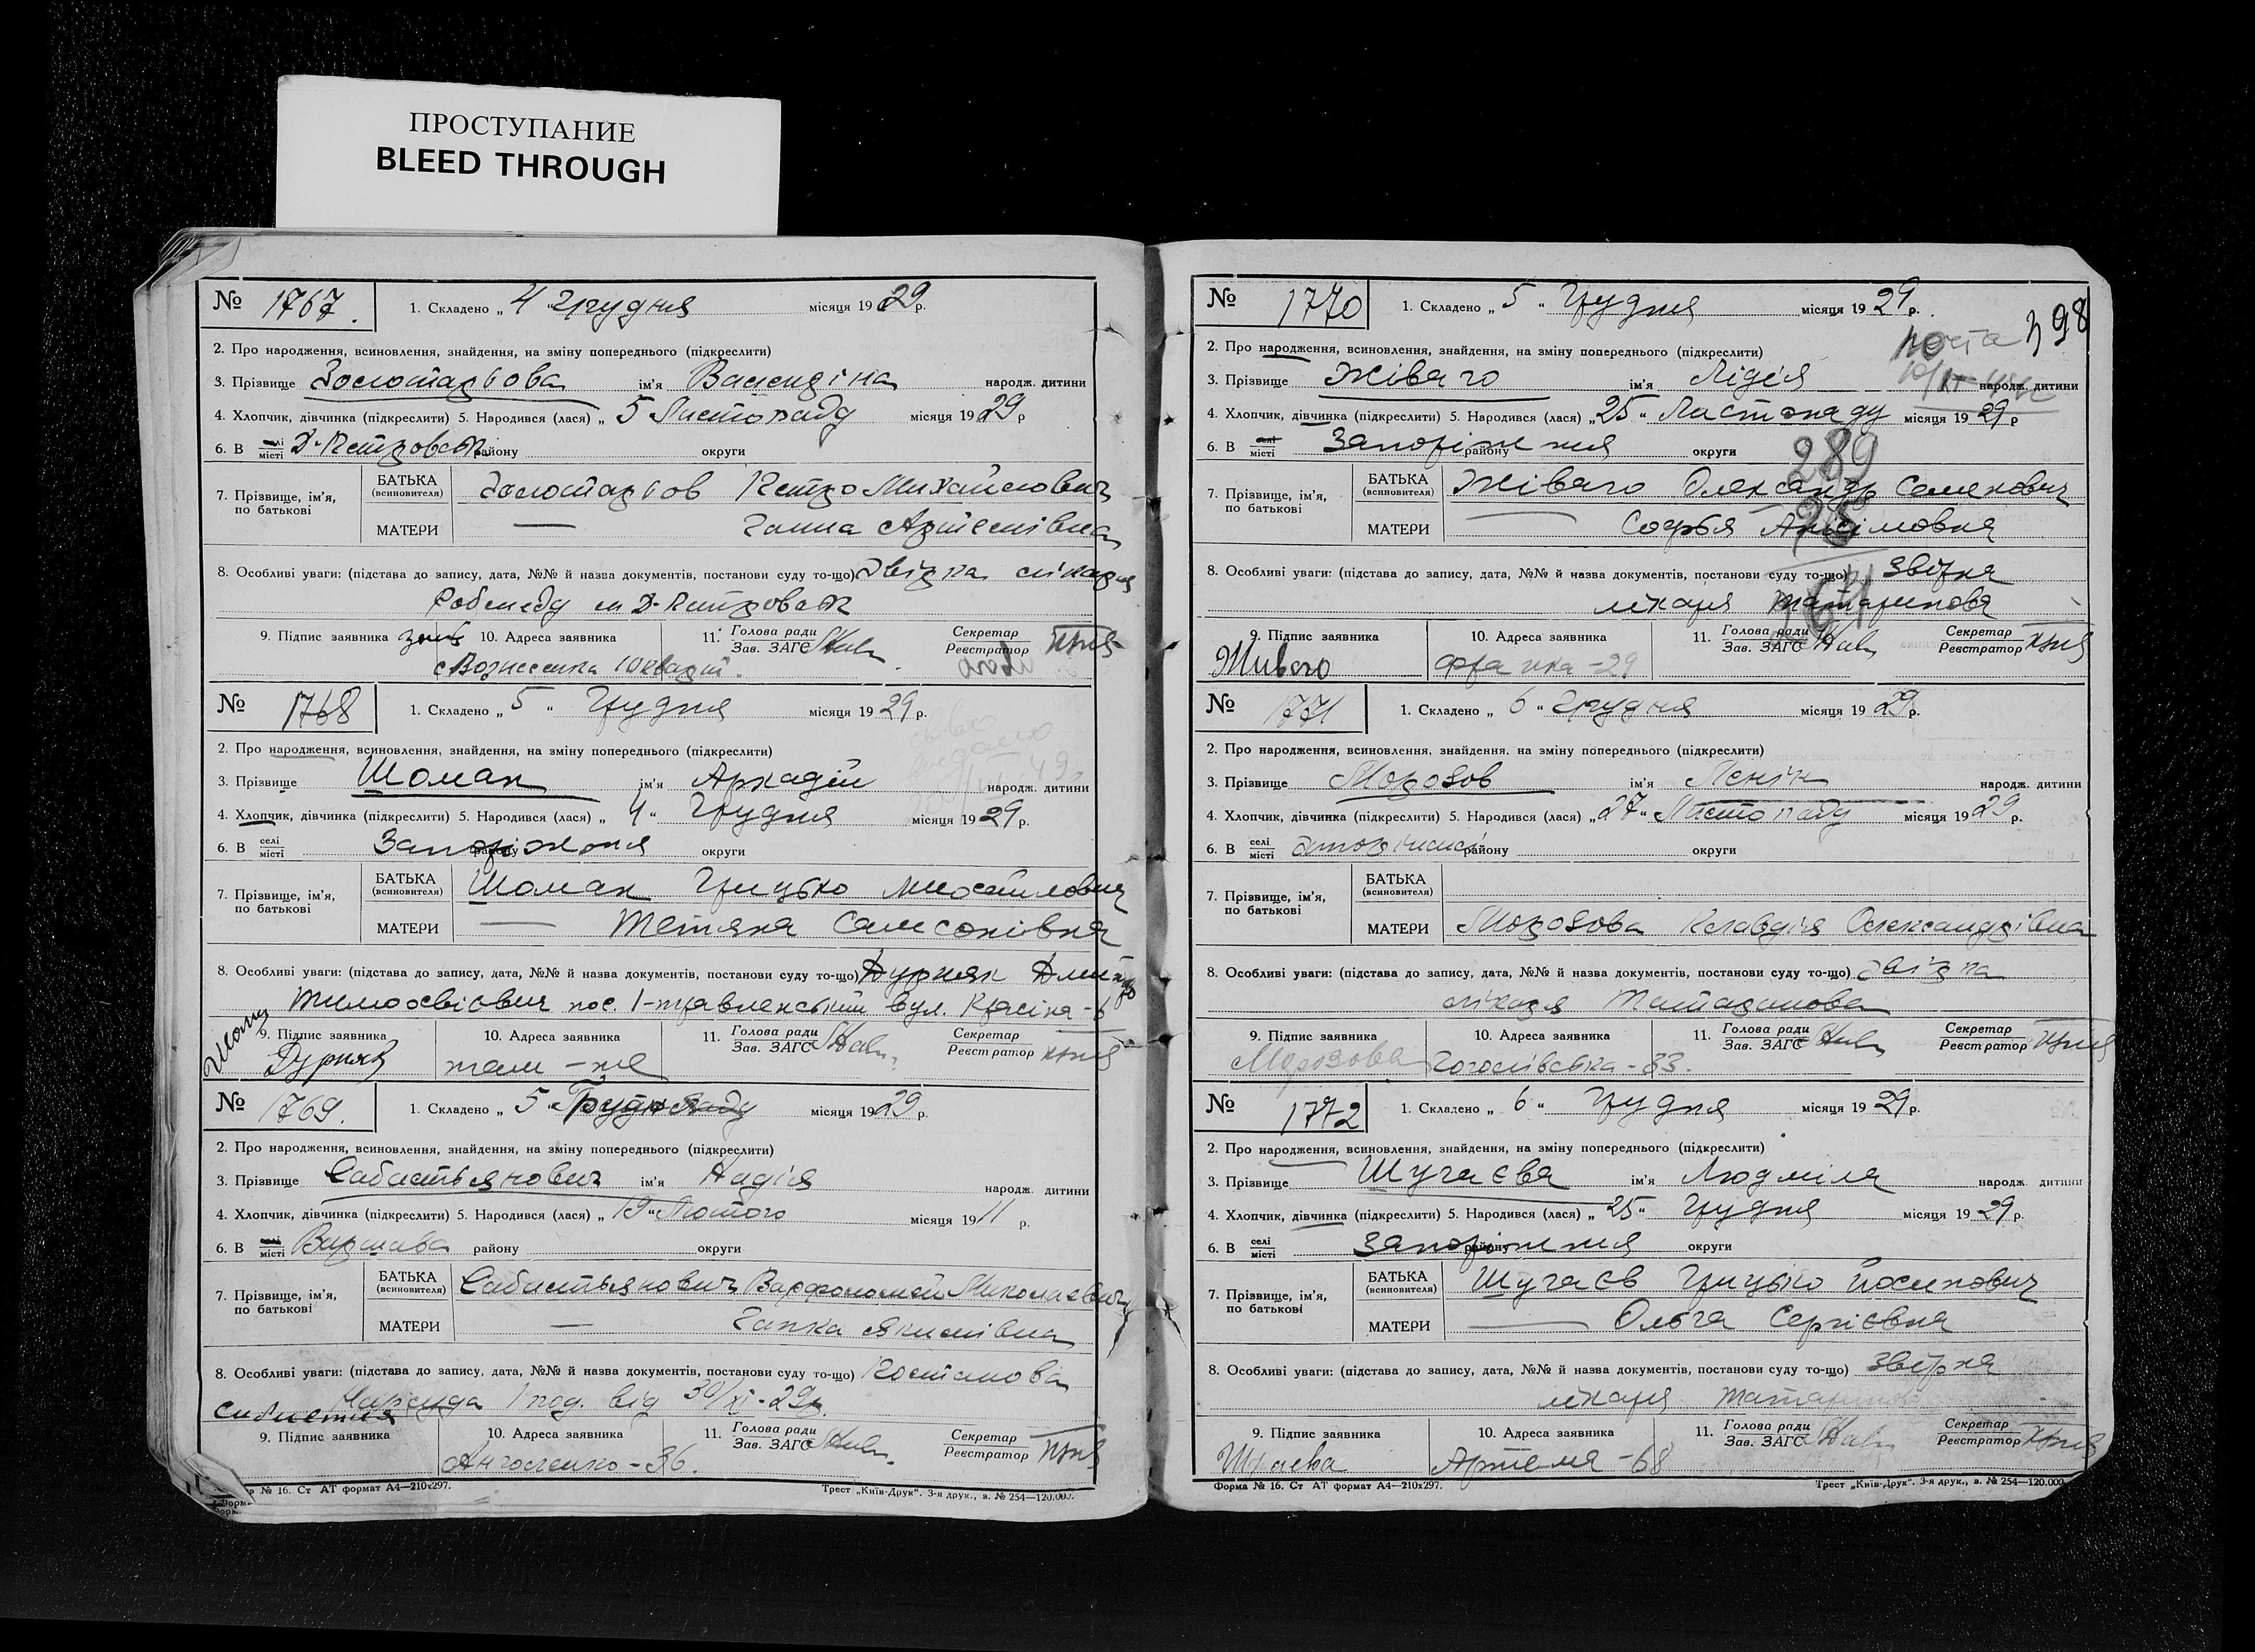 ПРОСТУПАНИЕ
BLEED THROUGH
№ 1767. 1. Складено „ 4 “ Грудня місяця 19 29 р.
2. Про народження, всиновлення, знайдення, на зміну попереднього (підкреслити)
3. Прізвище Золотарьова ім'я Валендіна народж. дитини
4. Хлопчик, дівчинка (підкреслити) 5. Народився (лася) „ 5 Листопаду місяця 19 29 р
6. В селі місті Д-Петровськ району округи
7. Прізвище, ім'я, по батькові БАТЬКА (всиновителя) Золотарьов Петро Михайлович
МАТЕРИ — Ганна Артемівна
8. Особливі уваги: (підстава до запису, дата, №№ й назва документів, постанови суду то-що) Звідка лікаря
м Д-Петровськ
9. Підпис заявника 10. Адреса заявника 11. Голова ради Зав. ЗАГС Секретар Реєстратор
с Вознесенка
№ 1768 1. Складено „ 5 “ Грудня місяця 19 29 р.
2. Про народження, всиновлення, знайдення, на зміну попереднього (підкреслити)
3. Прізвище Шоман ім'я Аркадій народж. дитини
4. Хлопчик, дівчинка (підкреслити) 5. Народився (лася) „ 4 “ Грудня місяця 19 29 р.
6. В селі місті Запоріжжя району округи
7. Прізвище, ім'я, по батькові БАТЬКА (всиновителя) Шоман Грицько Михайлович
МАТЕРИ — Тетяна Самсонівна
8. Особливі уваги: (підстава до запису, дата, №№ й назва документів, постанови суду то-що) Дурняк
пос. вул. Красіна - 6
9. Підпис заявника 10. Адреса заявника 11. Голова ради Зав. ЗАГС Секретар Реєстратор
Дурняк там - же
№ 1769. 1. Складено „ 5 “ місяця 19 29 р.
2. Про народження, всиновлення, знайдення, на зміну попереднього (підкреслити)
3. Прізвище Сабастьянович ім'я Надія народж. дитини
4. Хлопчик, дівчинка (підкреслити) 5. Народився (лася) „ 19 “ Лютого місяця 19 11 р.
6. В селі місті Варшава району округи
7. Прізвище, ім'я, по батькові БАТЬКА (всиновителя) Сабастьянович Варфоломей Миколаевич
МАТЕРИ — Ганка Якимівна
8. Особливі уваги: (підстава до запису, дата, №№ й назва документів, постанови суду то-що) Постанова
Нарсуда від 30/XI-29р.
9. Підпис заявника 10. Адреса заявника 11. Голова ради Зав. ЗАГС Секретар Реєстратор
- 36.
№ 16. Ст АТ формат А4—210х297. Трест „Київ-Друк“. 3-я друк., з. № 254—120.000.
№ 1770 1. Складено „ 5 “ Грудня місяця 19 29 р.
398
2. Про народження, всиновлення, знайдення, на зміну попереднього (підкреслити)
3. Прізвище Живаго ім'я Лідія народж. дитини
4. Хлопчик, дівчинка (підкреслити) 5. Народився (лася) „ 25 “ Листопаду місяця 19 29 р
6. В селі місті Запоріжжя району округи
289
7. Прізвище, ім'я, по батькові БАТЬКА (всиновителя) Живаго Олександр Семенович
МАТЕРИ — Софья Анісімовна
8. Особливі уваги: (підстава до запису, дата, №№ й назва документів, постанови суду то-що) Звідка
лікаря Татаринова
9. Підпис заявника 10. Адреса заявника 11. Голова ради Зав. ЗАГС Секретар Реєстратор
Живаго Франка - 29
№ 1771 1. Складено „ 6 “ Грудня місяця 19 29 р.
2. Про народження, всиновлення, знайдення, на зміну попереднього (підкреслити)
3. Прізвище Морозов ім'я Ленін народж. дитини
4. Хлопчик, дівчинка (підкреслити) 5. Народився (лася) „ 27 “ Листопаду місяця 19 29 р.
6. В селі місті району округи
7. Прізвище, ім'я, по батькові БАТЬКА (всиновителя)
МАТЕРИ Морозова Клавдія Олександрівна
8. Особливі уваги: (підстава до запису, дата, №№ й назва документів, постанови суду то-що) Звідка
лікаря Татаринова
9. Підпис заявника 10. Адреса заявника 11. Голова ради Зав. ЗАГС Секретар Реєстратор
Морозова Гоголівська - 33.
№ 1772 1. Складено „ 6 “ Грудня місяця 19 29 р.
2. Про народження, всиновлення, знайдення, на зміну попереднього (підкреслити)
3. Прізвище Шугаєва ім'я Людміла народж. дитини
4. Хлопчик, дівчинка (підкреслити) 5. Народився (лася) „ 25 “ Грудня місяця 19 29 р.
6. В селі місті Запоріжжя району округи
7. Прізвище, ім'я, по батькові БАТЬКА (всиновителя) Шугаєв Грицько Йосипович
МАТЕРИ — Ольга Сергієвна
8. Особливі уваги: (підстава до запису, дата, №№ й назва документів, постанови суду то-що) Звідка
лікаря Татаринова
9. Підпис заявника 10. Адреса заявника 11. Голова ради Зав. ЗАГС Секретар Реєстратор
Шугаева Артема - 68
Форма № 16. Ст АТ формат А4—210х297. Трест „Київ-Друк“. 3-я друк., з. № 254—120.000